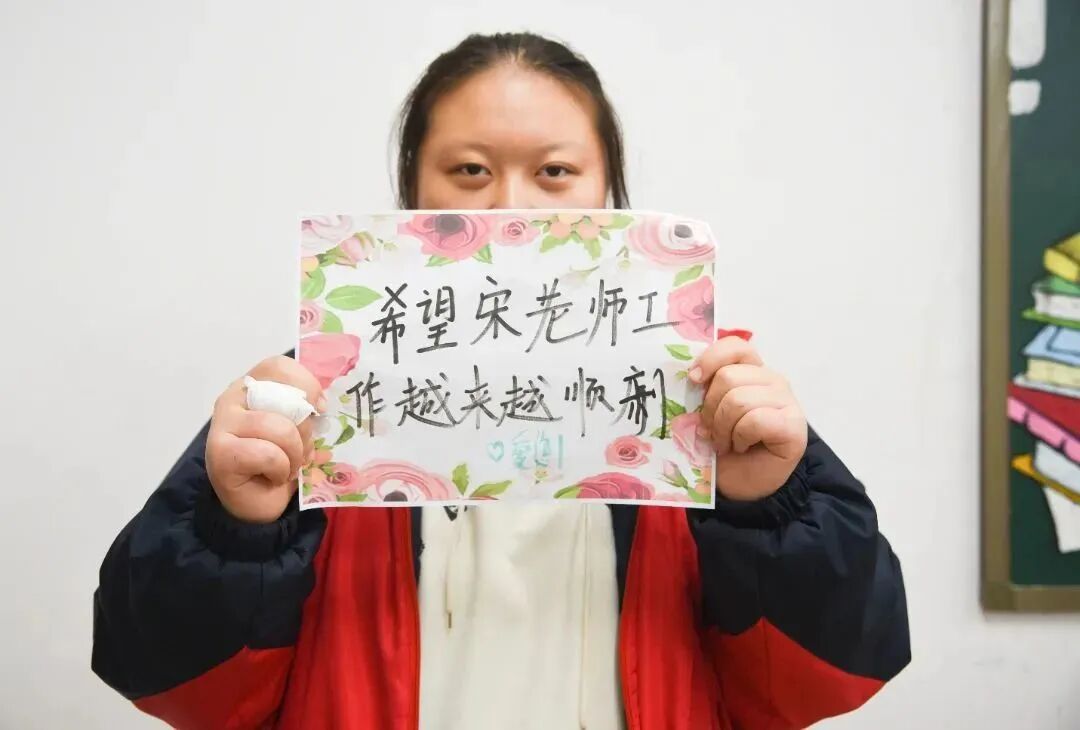 希望宋老师工
作越来越顺利